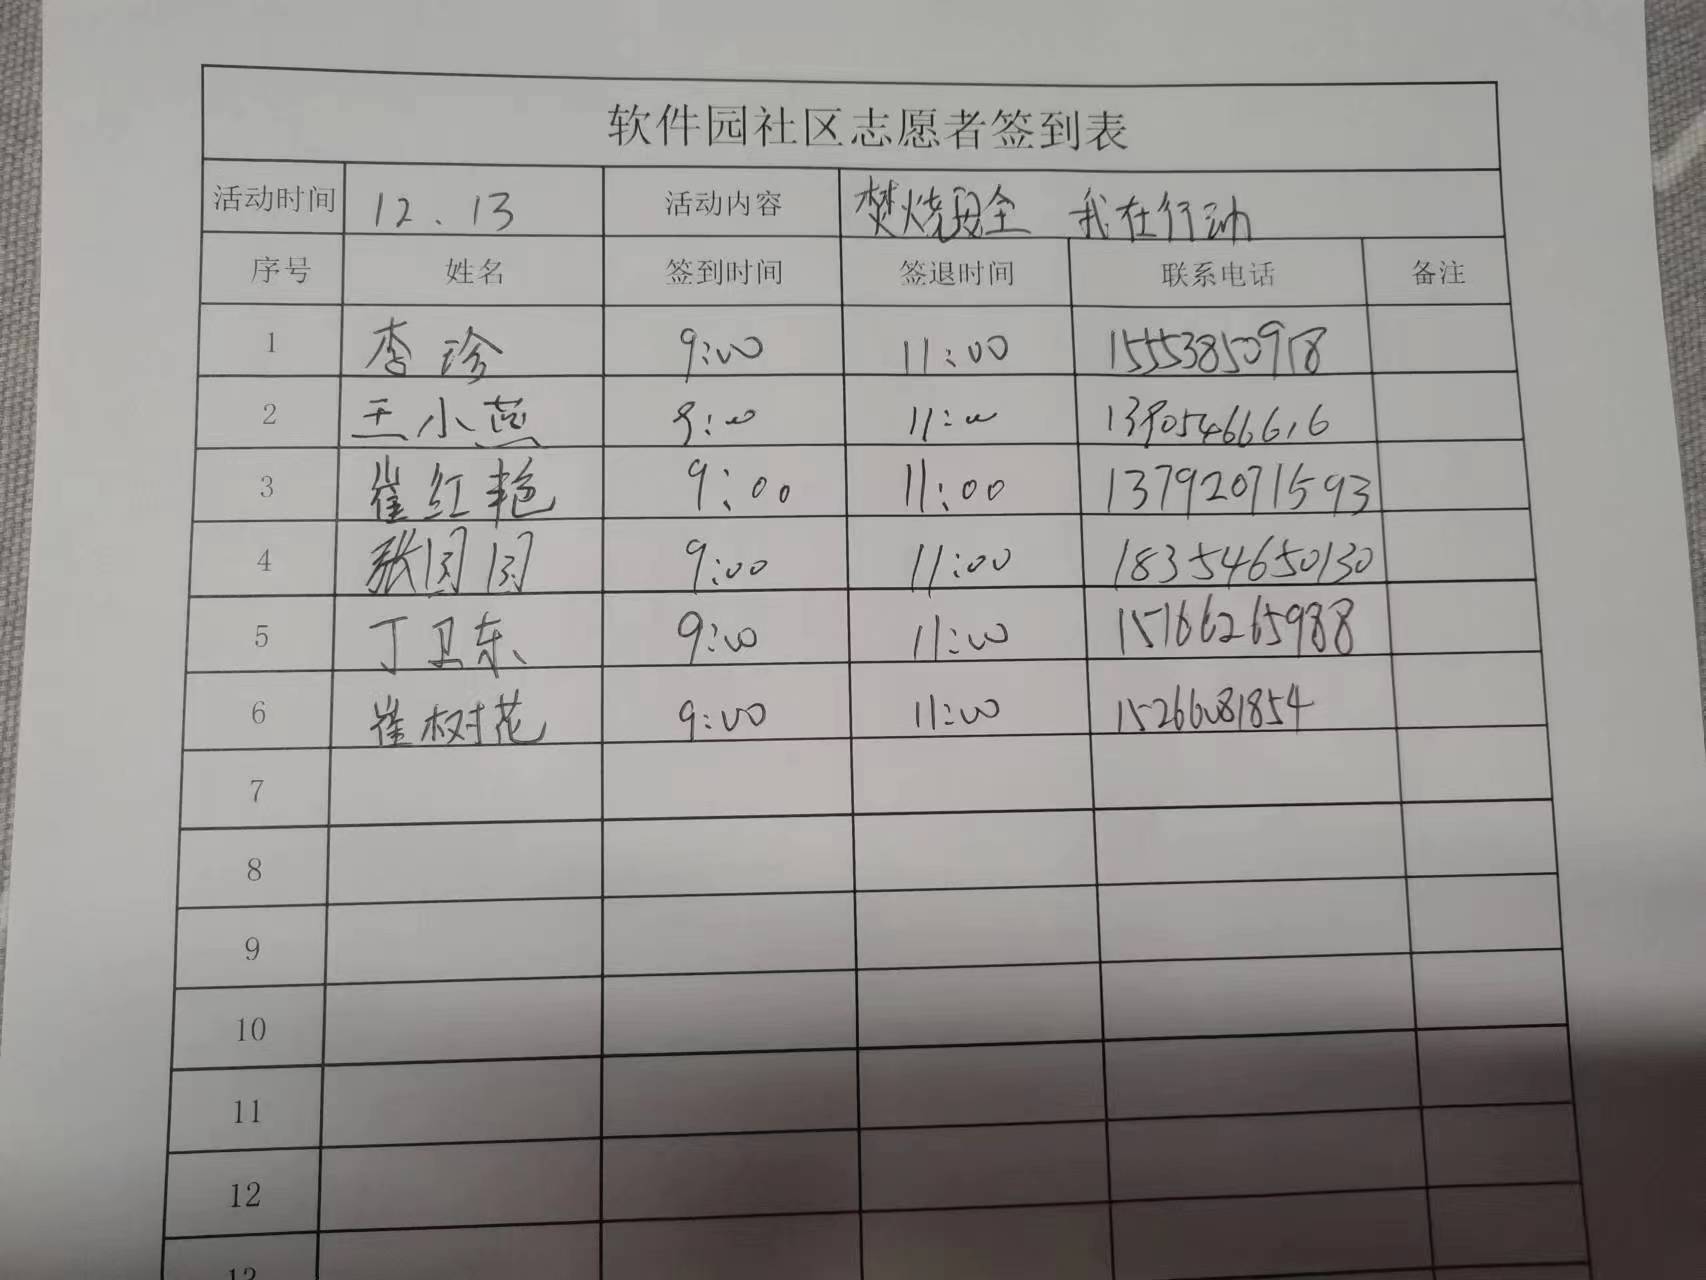 软件园社区志愿者签到表
活动时间 12.13 活动内容 焚烧安全 我在行动
序号 姓名 签到时间 签退时间 联系电话 备注
1 李珍 9:00 11:00 15553850918
2 王小燕 9:00 11:00 13905466616
3 崔红艳 9:00 11:00 13792071593
4 张团团 9:00 11:00 18354650130
5 丁卫东 9:00 11:00 15166265988
6 崔树花 9:00 11:00 15266081854
7
8
9
10
11
12
13